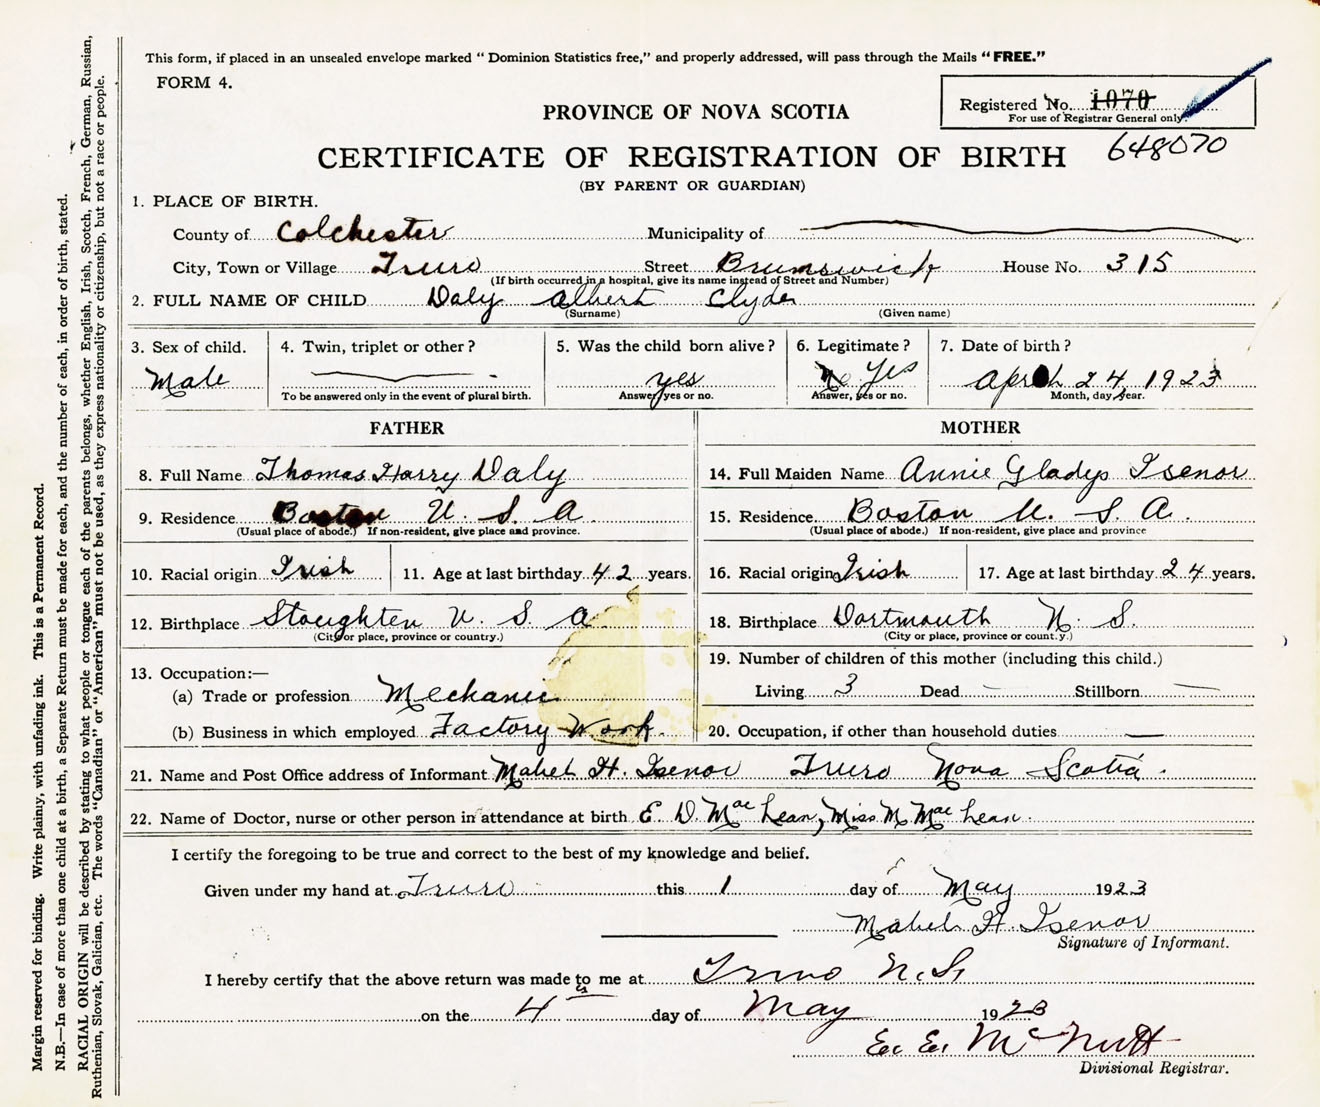 This form, if placed in an unsealed envelope marked “ Dominion Statistics free,” and properly addressed, will pass through the Mails “ FREE.”
FORM 4.
Registered No. 1070
For use of Registrar General only.
648070
PROVINCE OF NOVA SCOTIA
CERTIFICATE OF REGISTRATION OF BIRTH
(BY PARENT OR GUARDIAN)
1. PLACE OF BIRTH.
County of Colchester Municipality of
City, Town or Village Truro Street Brunswick House No. 315
(If birth occurred in a hospital, give its name instead of Street and Number)
2. FULL NAME OF CHILD Daly Albert Clyde
(Surname) (Given name)
3. Sex of child. 4. Twin, triplet or other ? 5. Was the child born alive ? 6. Legitimate ? 7. Date of birth ?
Male yes No Yes April 24, 1923
To be answered only in the event of plural birth. Answer, yes or no. Answer, yes or no. Month, day, year.
FATHER MOTHER
8. Full Name Thomas Harry Daly 14. Full Maiden Name Annie Gladys Isenor
9. Residence Boston U. S. A. 15. Residence Boston U. S. A.
(Usual place of abode.) If non-resident, give place and province. (Usual place of abode.) If non-resident, give place and province
10. Racial origin Irish 11. Age at last birthday 42 years. 16. Racial origin Irish 17. Age at last birthday 24 years.
12. Birthplace Stoughten U. S. A. 18. Birthplace Dartmouth N. S.
(City or place, province or country.) (City or place, province or count.y.)
19. Number of children of this mother (including this child.)
13. Occupation:—
(a) Trade or profession Mechanic Living 3 Dead — Stillborn —
(b) Business in which employed Factory Work. 20. Occupation, if other than household duties —
21. Name and Post Office address of Informant Mabel H. Isenor Truro Nova Scotia.
22. Name of Doctor, nurse or other person in attendance at birth E. D. MacLean, Miss M MacLean.
I certify the foregoing to be true and correct to the best of my knowledge and belief.
Given under my hand at Truro this 1 day of May 1923
Mabel H. Isenor
Signature of Informant.
I hereby certify that the above return was made to me at Truro N.S.
on the 4th day of May 1923
E. E. McNutt
Divisional Registrar.
Margin reserved for binding. Write plainly, with unfading ink. This is a Permanent Record.
N.B.—In case of more than one child at a birth, a Separate Return must be made for each, and the number of each, in order of birth, stated.
RACIAL ORIGIN will be described by stating to what people or tongue each of the parents belongs, whether English, Irish, Scotch, French, German, Russian,
Ruthenian, Slovak, Galician, etc. The words “Canadian” or “American” must not be used, as they express nationality or citizenship, but not a race or people.